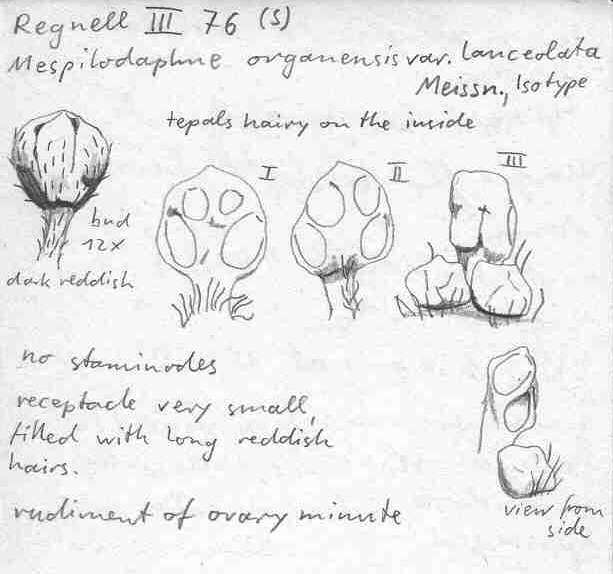 Regnell III 76 (S)
Mespilodaphne organensis var. lanceolata
Meissn., Isotype
tepals hairy on the inside
I
II
III
bud
12x
dark reddish
no staminodes
receptacle very small,
filled with long reddish
hairs.
rudiment of ovary minute
view from
side